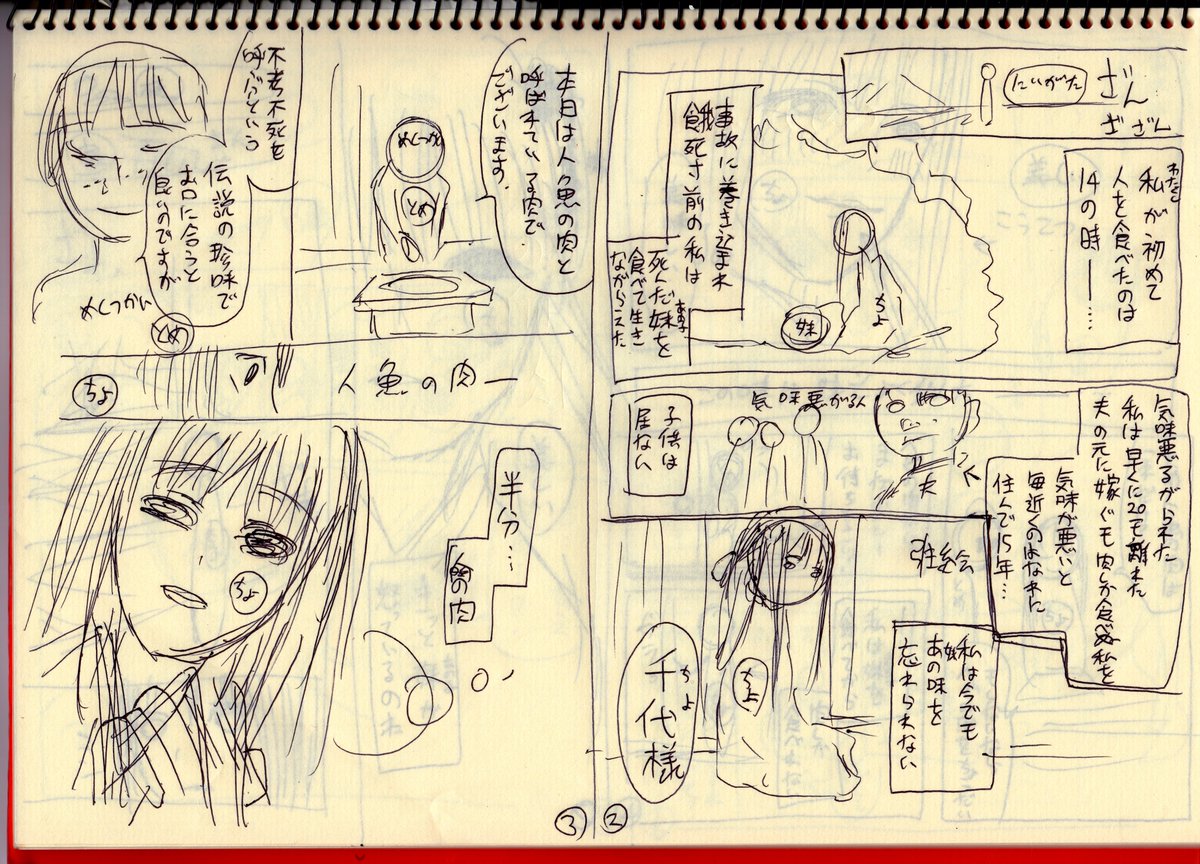 ざん
ざざん
にいがた
わたし
私が初めて
人を食べたのは
14の時――……
事故に巻き込まれ
餓死寸前の私は
死んだ妹を
食べて生き
ながらえた
ちよ
妹
気味悪るがられた
私は早くに20も離れた
夫の元に嫁ぐも肉しか食べぬ私を
気味が悪いと
毎近くのはなれに
住んで15年…
気味悪がる人
夫
子供は
居ない
私は今でも
あの妹の味を
忘れられない
ちよ
ちよ
千代様
2
本日は人魚の肉と
呼ばれている肉で
ございます。
めしつかい
とめ
不老不死を
呼ぶという
伝説の珍味で
お口に合うと
良いのですが
めしつかい
とめ
人魚の肉―
ちよ
半分…
人の肉
ちよ
3